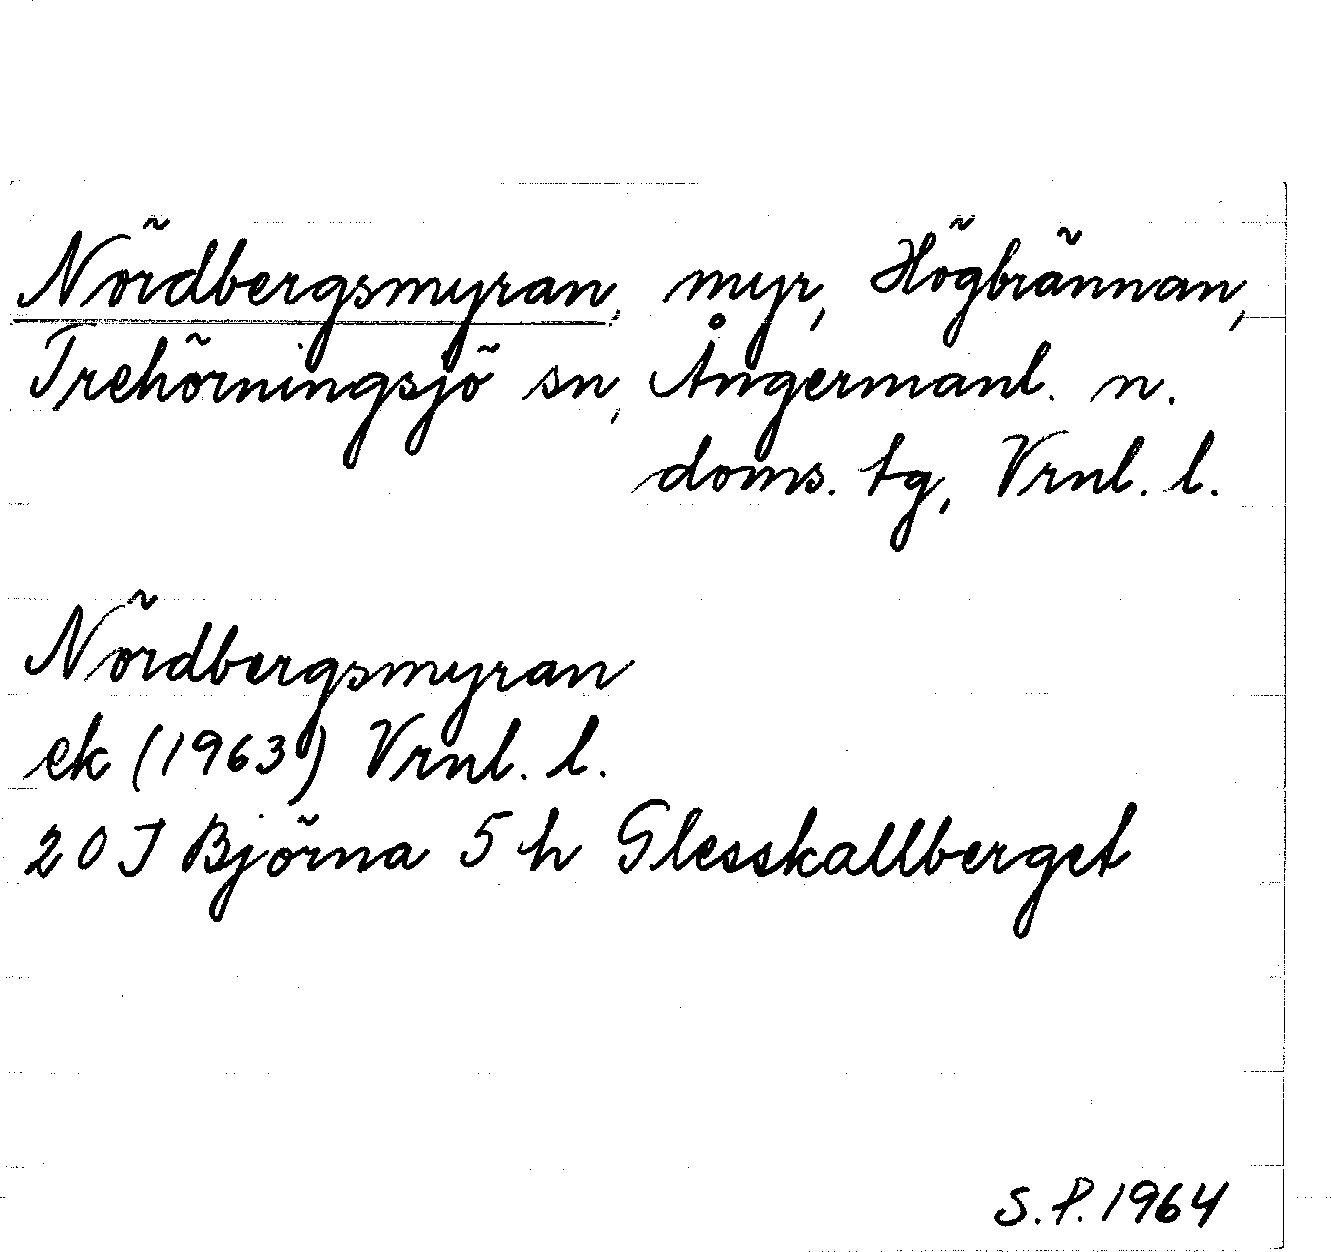 Nördbergsmyran, myr, Högbrännan,
Trehörningsjö sn, Ångermanl. n.
doms. tg, Vrnl. l.
Nördbergsmyran
ek (1963) Vrnl. l.
20 J Björna 5 h Glesskallberget
S.P. 1964